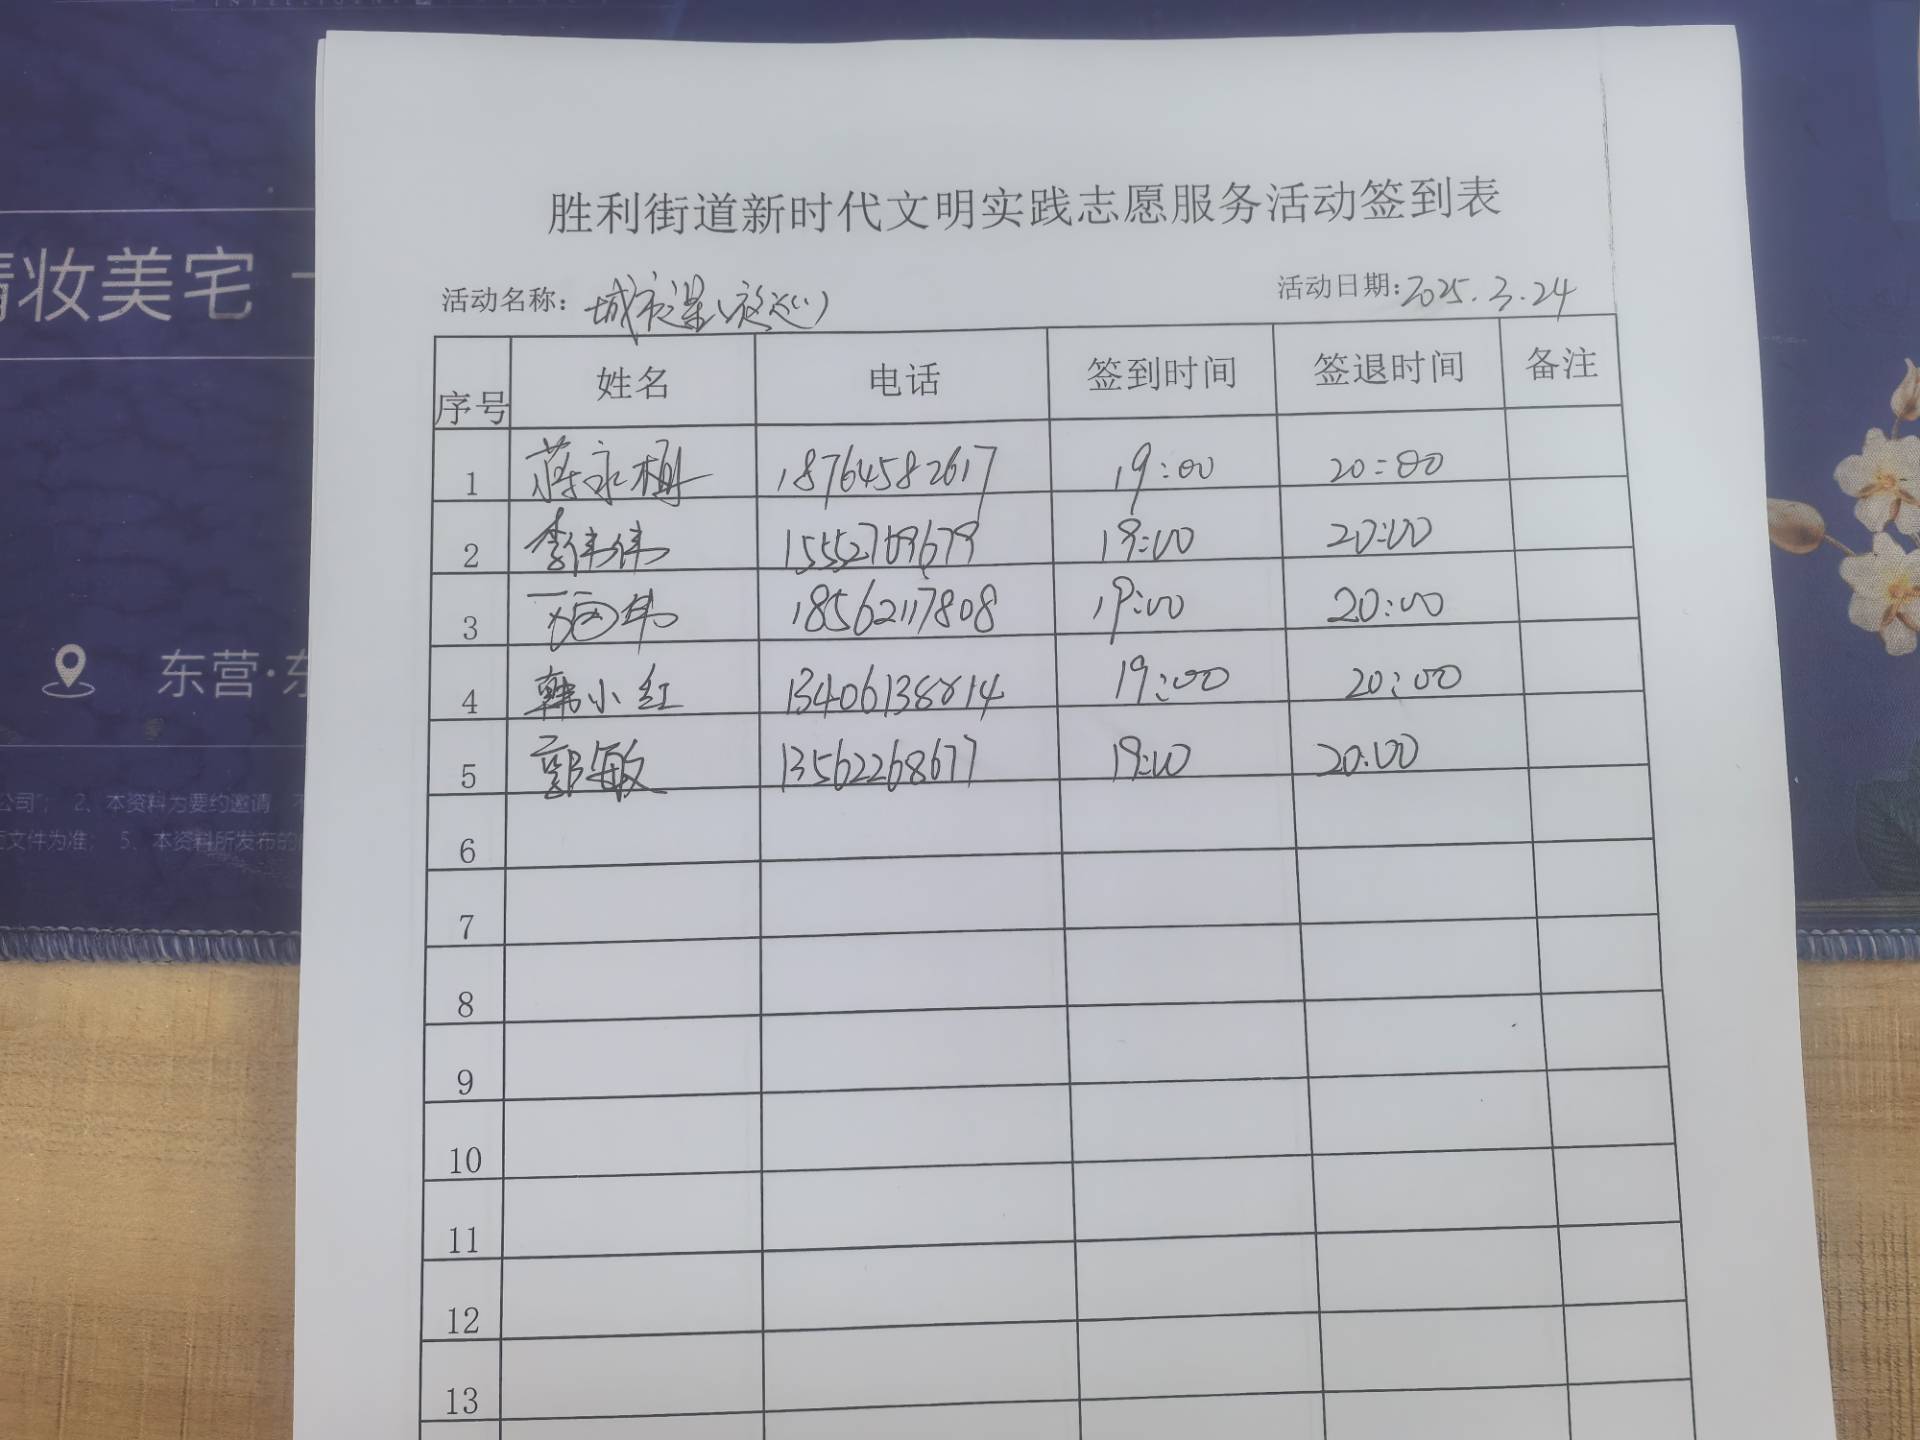 妆美宅
东营·东
公司"; 2、本资料为要约邀请
文件为准; 5、本资料所发布的
胜利街道新时代文明实践志愿服务活动签到表
活动名称: 城市 活动日期: 2025.3.24
序号 姓名 电话 签到时间 签退时间 备注
1 蒋永树 18764582617 19:00 20:00
2 李伟伟 15552769679 19:00 20:00
3 18562117808 19:00 20:00
4 韩小红 13406138814 19:00 20:00
5 郭敏 13562268677 19:00 20:00
6
7
8
9
10
11
12
13